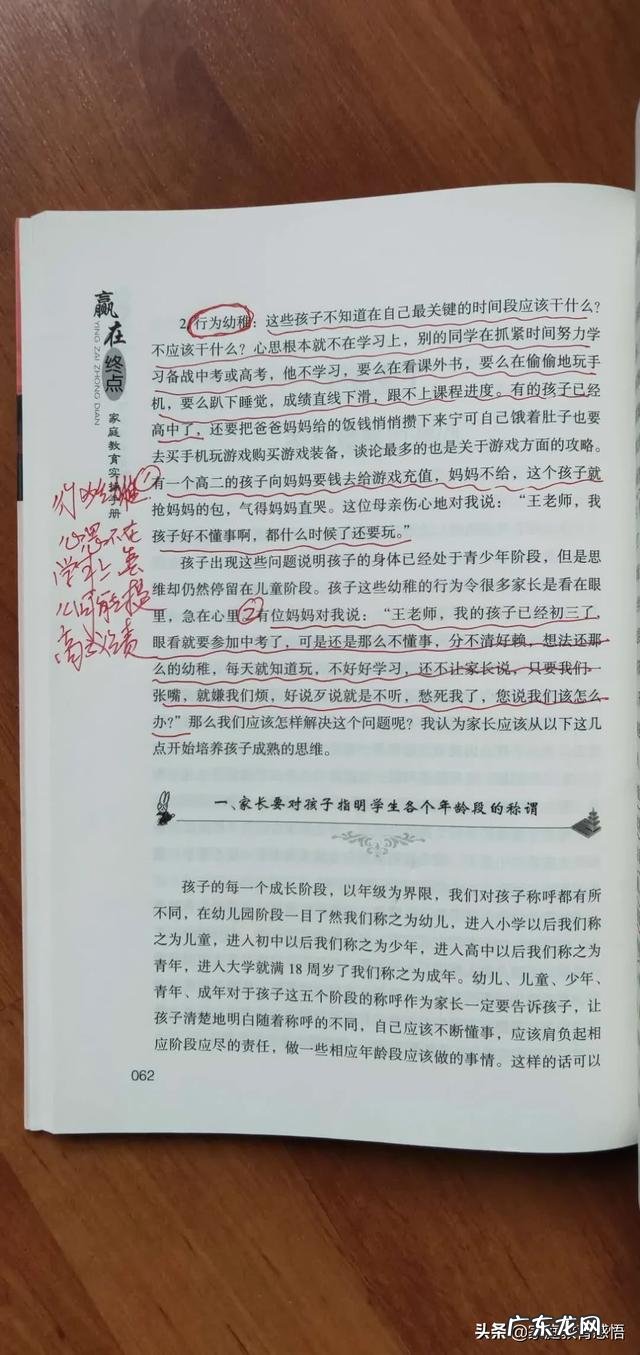 赢在终点
YING ZAI ZHONG DIAN
家庭教育实操手册
2. 行为幼稚：这些孩子不知道在自己最关键的时间段应该干什么？
不应该干什么？心思根本就不在学习上，别的同学在抓紧时间努力学
习备战中考或高考，他不学习，要么在看课外书，要么在偷偷地玩手
机，要么趴下睡觉，成绩直线下滑，跟不上课程进度。有的孩子已经
高中了，还要把爸爸妈妈给的饭钱悄悄攒下来宁可自己饿着肚子也要
去买手机玩游戏购买游戏装备，谈论最多的也是关于游戏方面的攻略。
有一个高二的孩子向妈妈要钱去给游戏充值，妈妈不给，这个孩子就
抢妈妈的包，气得妈妈直哭。这位母亲伤心地对我说：“王老师，我
孩子好不懂事啊，都什么时候了还要玩。”
孩子出现这些问题说明孩子的身体已经处于青少年阶段，但是思
维却仍然停留在儿童阶段。孩子这些幼稚的行为令很多家长是看在眼
里，急在心里②有位妈妈对我说：“王老师，我的孩子已经初三了，
眼看就要参加中考了，可是还是那么不懂事，分不清好赖，想法还那
么的幼稚，每天就知道玩，不好好学习，还不让家长说，只要我们一
张嘴，就嫌我们烦，好说歹说就是不听，愁死我了，您说我们该怎么
办？”那么我们应该怎样解决这个问题呢？我认为家长应该从以下这几
点开始培养孩子成熟的思维。
①
心思不在
学习上
一、家长要对孩子指明学生各个年龄段的称谓
孩子的每一个成长阶段，以年级为界限，我们对孩子称呼都有所
不同，在幼儿园阶段一目了然我们称之为幼儿，进入小学以后我们称
之为儿童，进入初中以后我们称之为少年，进入高中以后我们称之为
青年，进入大学就满 18 周岁了我们称之为成年。幼儿、儿童、少年、
青年、成年对于孩子这五个阶段的称呼作为家长一定要告诉孩子，让
孩子清楚地明白随着称呼的不同，自己应该不断懂事，应该肩负起相
应阶段应尽的责任，做一些相应年龄段应该做的事情。这样的话可以
062
头条@家庭教育感悟
广东龙网